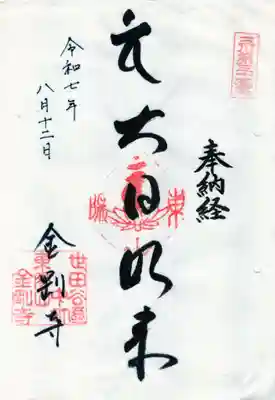 奉納経
大日如来
令和七年
八月十二日
金剛寺
世田谷區
中町
金剛寺